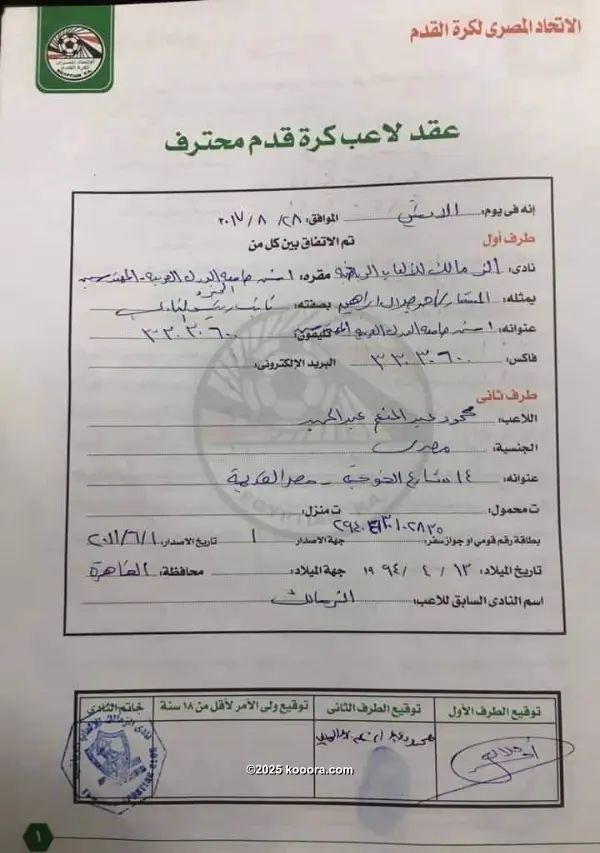 الاتحاد المصرى لكرة القدم
الاتحاد المصرى
لكرة القدم
EGYPTIAN F.A.
عقد لاعب كرة قدم محترف
إنه فى يوم: الاثنين الموافق: ٢٨/ ٨ / ٢٠١٧
تم الاتفاق بين كل من
طرف أول
نادى: الزمالك للألعاب الرياضية مقره: ١ ش جامعة الدول العربية - المهندسين
الجيزة
يمثله: المستشار/ احمد جلال ابراهيم بصفته: نائب رئيس النادى
عنوانه: ١ ش جامعة الدول العربية المهندسين تليفون: ٣٣٠٣٠٦٠٠
فاكس: ٣٣٠٣٠٦٠٠ البريد الإلكترونى:
طرف ثانى
اللاعب: محمود عبد المنعم عبد الحميد
الجنسية: مصرى
عنوانه: ١٤ شارع - مصر القديمة
ت محمول: ت منزل:
بطاقة رقم قومى او جواز سفر: جهة الاصدار ١ تاريخ الاصدار: ٢٠١١/٦/١
تاريخ الميلاد: ١٣ / ٤ / ١٩٩٤ جهة الميلاد: محافظة: القاهرة
اسم النادى السابق للاعب: الزمالك
توقيع الطرف الأول توقيع الطرف الثانى توقيع ولى الأمر لأقل من ١٨ سنة خاتم النادى
محمود عبد المنعم عبد الحميد
©2025 kooora.com
١